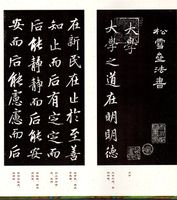 松雪盦法書
大學
大學之道在明明德
在新民在止於至善
知止而后有定定而
后能靜靜而后能安
安而后能慮慮而后